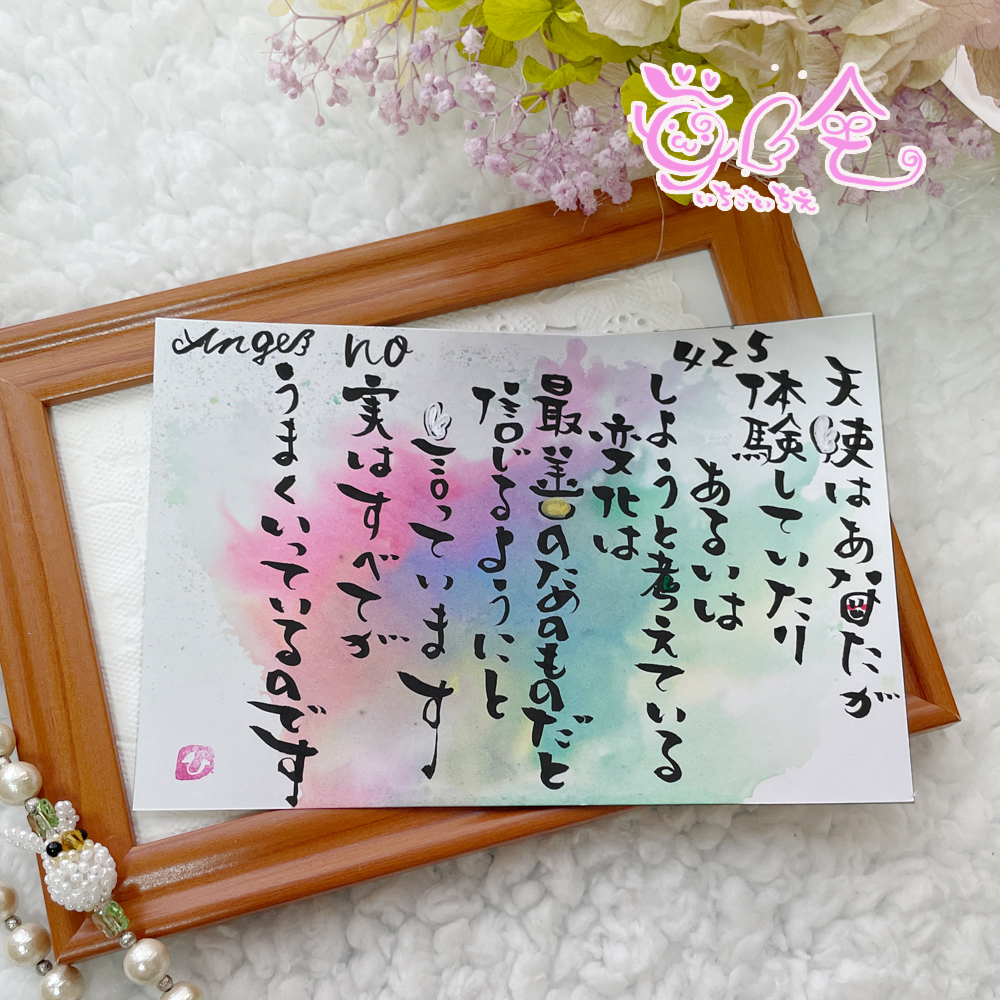 天使はあなたが
体験していたり
あるいは
しようと考えている
変化は
最善のためのものだと
信じるようにと
言っています
実はすべてが
うまくいっているのです
Angel no 425
いちごいちえ